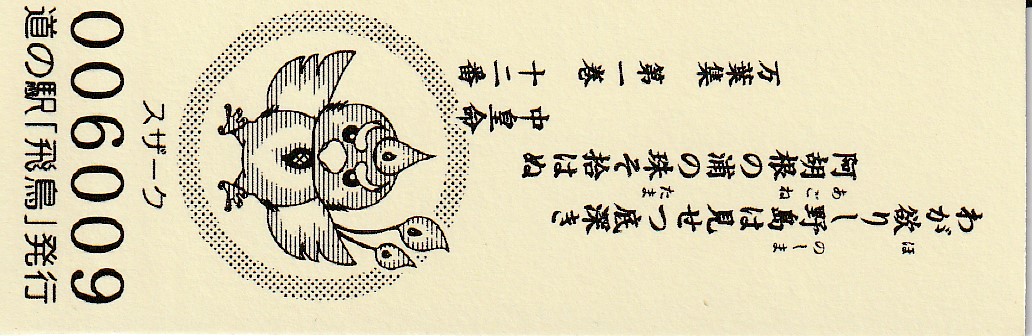 ほ のしま
わが欲りし野島は見せつ底深き
あごね たま
阿胡根の浦の珠そ拾はぬ
中皇命
万葉集 第一巻 十二番
スザーク
006009
道の駅「飛鳥」発行